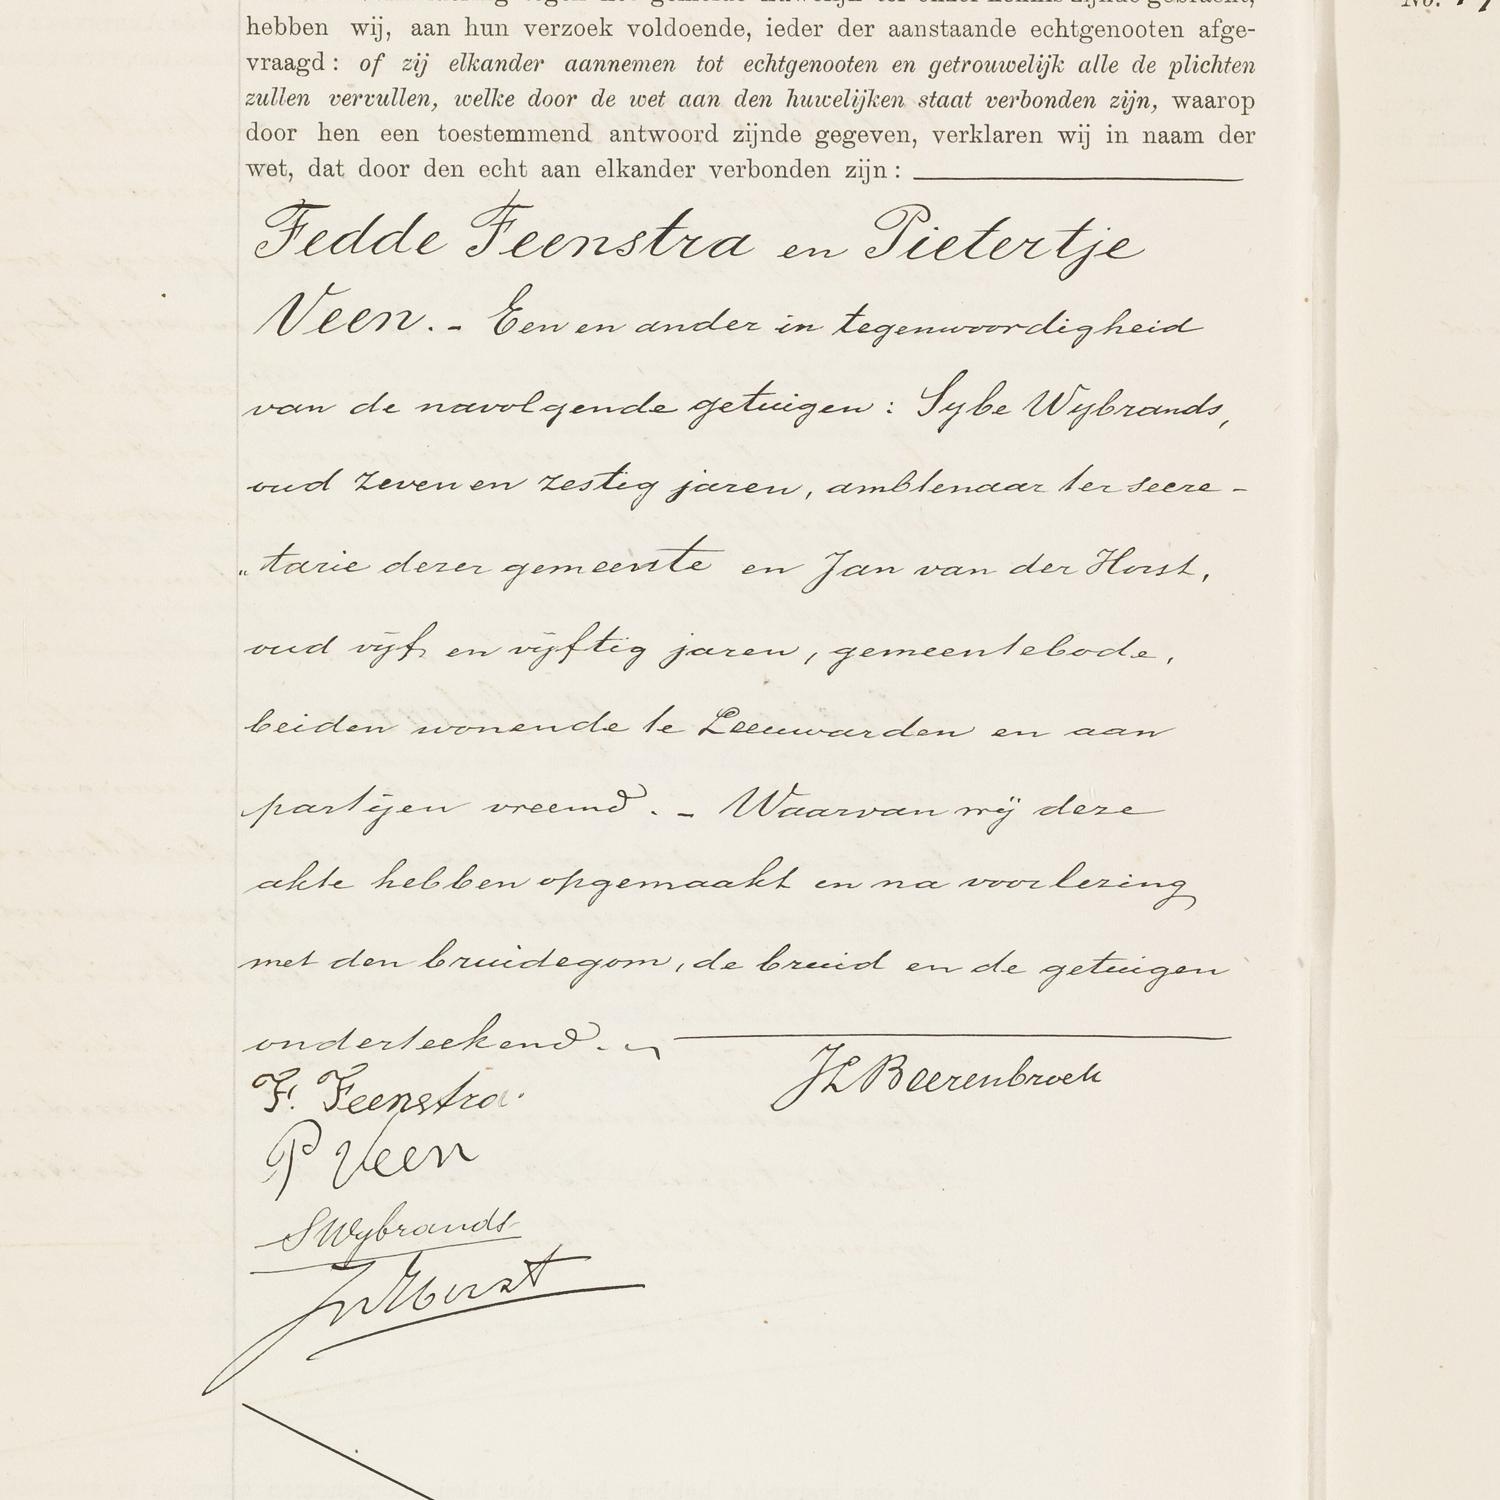 hebben wij, aan hun verzoek voldoende, ieder der aanstaande echtgenooten afge-
vraagd: of zij elkander aannemen tot echtgenooten en getrouwelijk alle de plichten
zullen vervullen, welke door de wet aan den huwelijken staat verbonden zijn, waarop
door hen een toestemmend antwoord zijnde gegeven, verklaren wij in naam der
wet, dat door den echt aan elkander verbonden zijn:
Fedde Feenstra en Pietertje
Veen. - Een en ander in tegenwoordigheid
van de navolgende getuigen: Sybe Wybrands,
oud zeven en zestig jaren, ambtenaar ter secre-
„tarie dezer gemeente en Jan van der Horst,
oud vijf en vijftig jaren, gemeentebode,
beiden wonende te Leeuwarden en aan
partijen vreemd. - Waarvan wij deze
akte hebben opgemaakt en na voorlezing
met den bruidegom, de bruid en de getuigen
onderteekend. -
JL Beerenbrock
F. Feenstra.
P Veen
S Wybrands
JvdHorst
No.